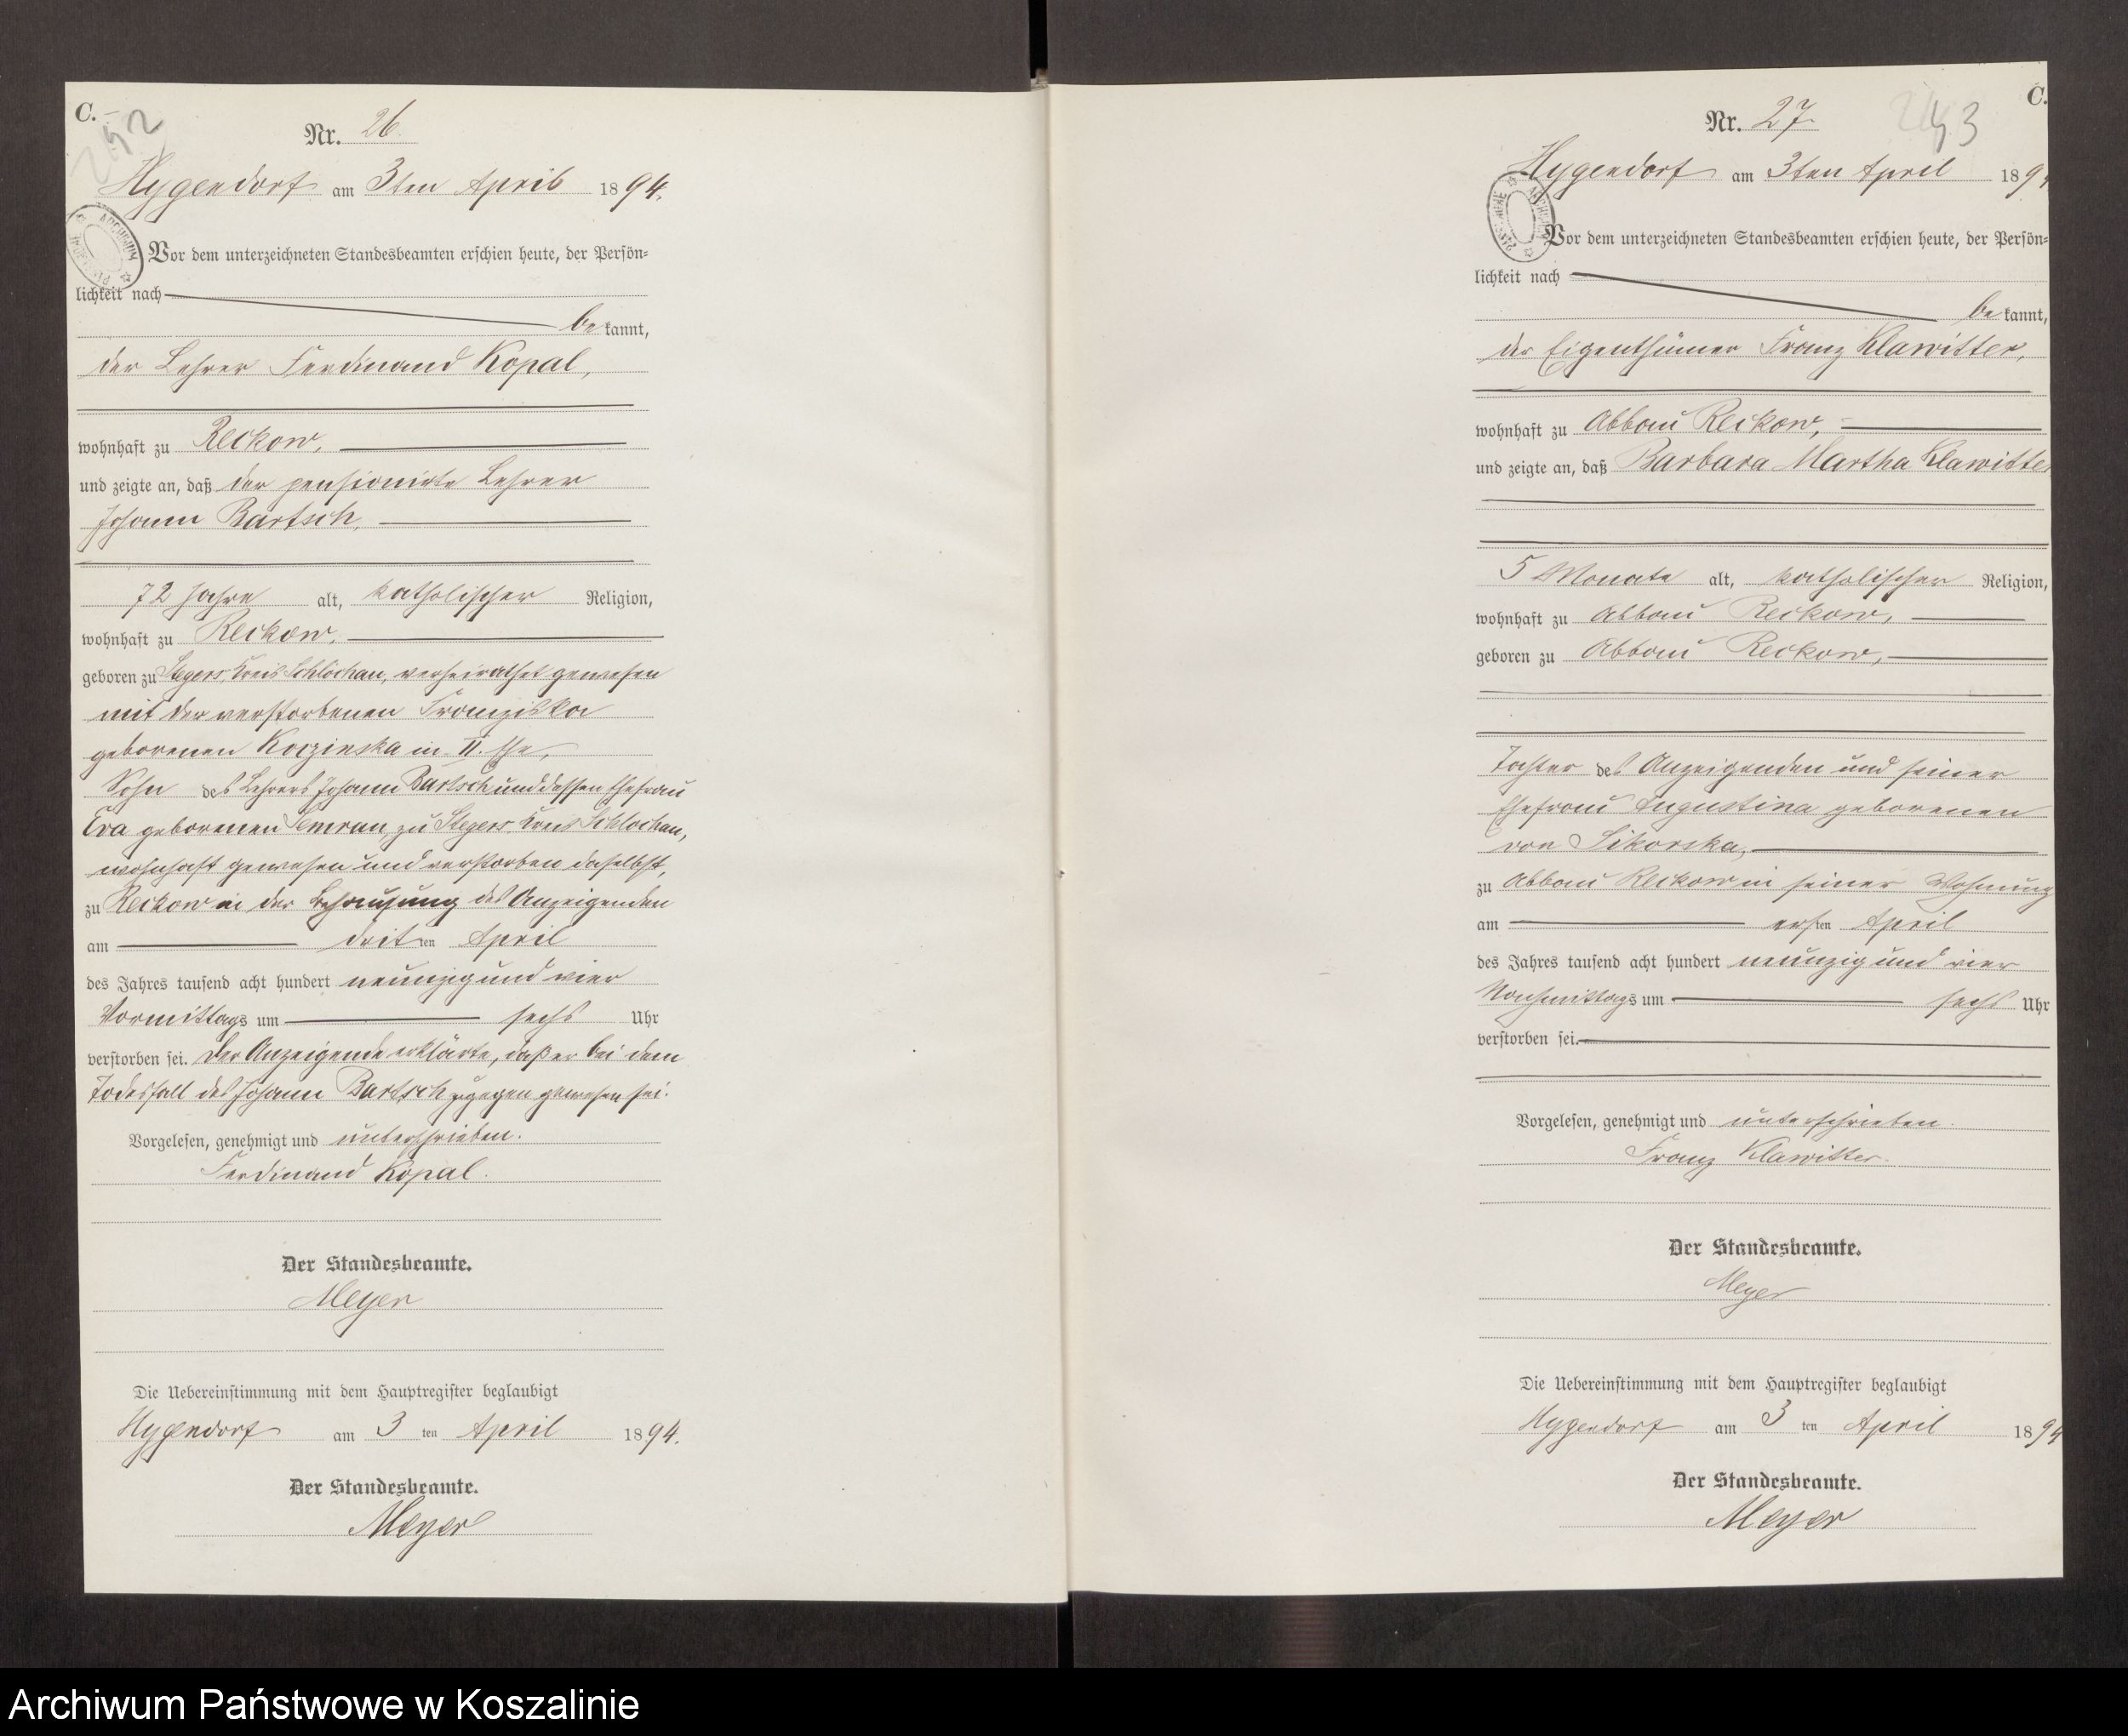 C.
Nr. 26.
Hygendorf am 3ten April 1894.
Vor dem unterzeichneten Standesbeamten erschien heute, der Persön-
lichkeit nach
bekannt,
der Lehrer Ferdinand Kopal,
wohnhaft zu Reckow,
und zeigte an, daß der pensionirte Lehrer
Johann Bartsch,
72 Jahre alt, katholischer Religion,
wohnhaft zu Reckow,
geboren zu Stegers, Kreis Schlochau, verheirathet gewesen
mit der verstorbenen Franziska
geborenen Koczinska in II. Ehe,
Sohn des Lehrers Johann Bartsch und dessen Ehefrau
Eva geborenen Semrau, zu Stegers, Kreis Schlochau,
wohnhaft gewesen und verstorben daselbst,
zu Reckow in der Behausung des Anzeigenden
am dritten April
des Jahres tausend acht hundert neunzig und vier
Vormittags um sechs Uhr
verstorben sei. Der Anzeigende erklärte, daß er bei dem
Todesfall des Johann Bartsch zugegen gewesen sei.
Vorgelesen, genehmigt und unterschrieben.
Ferdinand Kopal.
Der Standesbeamte.
Meyer
Die Uebereinstimmung mit dem Hauptregister beglaubigt
Hygendorf am 3 ten April 1894.
Der Standesbeamte.
Meyer
C.
Nr. 27.
Hygendorf am 3ten April 189
Vor dem unterzeichneten Standesbeamten erschien heute, der Persön-
lichkeit nach
bekannt,
der Eigenthümer Franz Klawitter,
wohnhaft zu Abbau Reckow,
und zeigte an, daß Barbara Martha Klawitter
5 Monate alt, katholischer Religion,
wohnhaft zu Abbau Reckow,
geboren zu Abbau Reckow,
Tochter des Anzeigenden und seiner
Ehefrau Augustina geborenen
von Sikorska,
zu Abbau Reckow in seiner Wohnung
am ersten April
des Jahres tausend acht hundert neunzig und vier
Nachmittags um sechs Uhr
verstorben sei.
Vorgelesen, genehmigt und unterschrieben.
Franz Klawitter.
Der Standesbeamte.
Meyer
Die Uebereinstimmung mit dem Hauptregister beglaubigt
Hygendorf am 3 ten April 1894
Der Standesbeamte.
Meyer
Archiwum Państwowe w Koszalinie